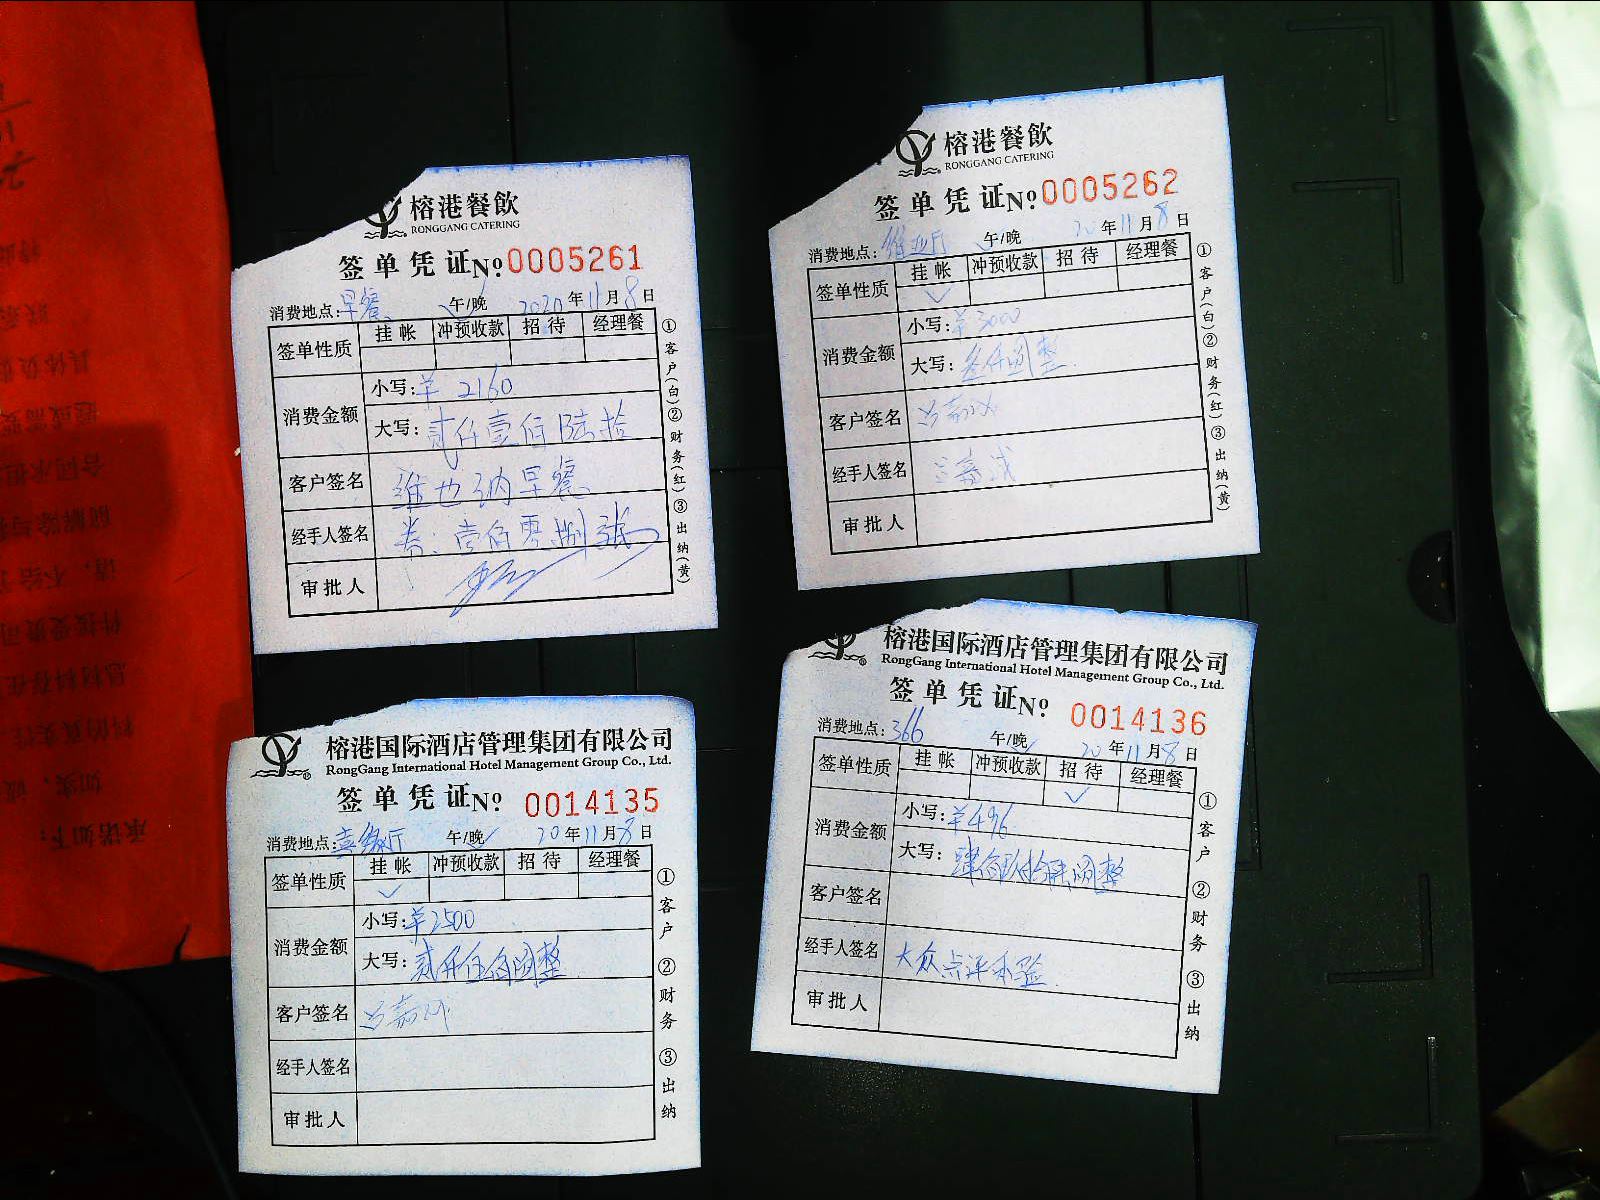 榕港餐飲
RONGGANG CATERING
签单凭证 №0005261
消费地点:早餐 午/晚 2020年11月8日
签单性质 挂帐 冲预收款 招待 经理餐
消费金额 小写:¥2160
大写:贰仟壹佰陆拾
客户签名 维也纳早餐
经手人签名 券:壹佰零捌张
审批人
①客户(白)②财务(红)③出纳(黄)
榕港餐飲
RONGGANG CATERING
签单凭证 №0005262
消费地点:维也厅 午/晚 20年11月8日
签单性质 挂帐 冲预收款 招待 经理餐
消费金额 小写:¥3000
大写:叁仟圆整
客户签名
经手人签名
审批人
①客户(白)②财务(红)③出纳(黄)
榕港国际酒店管理集团有限公司
RongGang International Hotel Management Group Co., Ltd.
签单凭证 №0014135
消费地点:喜缘厅 午/晚 20年11月8日
签单性质 挂帐 冲预收款 招待 经理餐
消费金额 小写:¥2500
大写:贰仟伍佰圆整
客户签名
经手人签名
审批人
①客户 ②财务 ③出纳
榕港国际酒店管理集团有限公司
RongGang International Hotel Management Group Co., Ltd.
签单凭证 №0014136
消费地点:366 午/晚 20年11月8日
签单性质 挂帐 冲预收款 招待 经理餐
消费金额 小写:¥496
大写:肆佰玖拾陆圆整
客户签名
经手人签名 大众点评体验
审批人
①客户 ②财务 ③出纳
承诺如下: